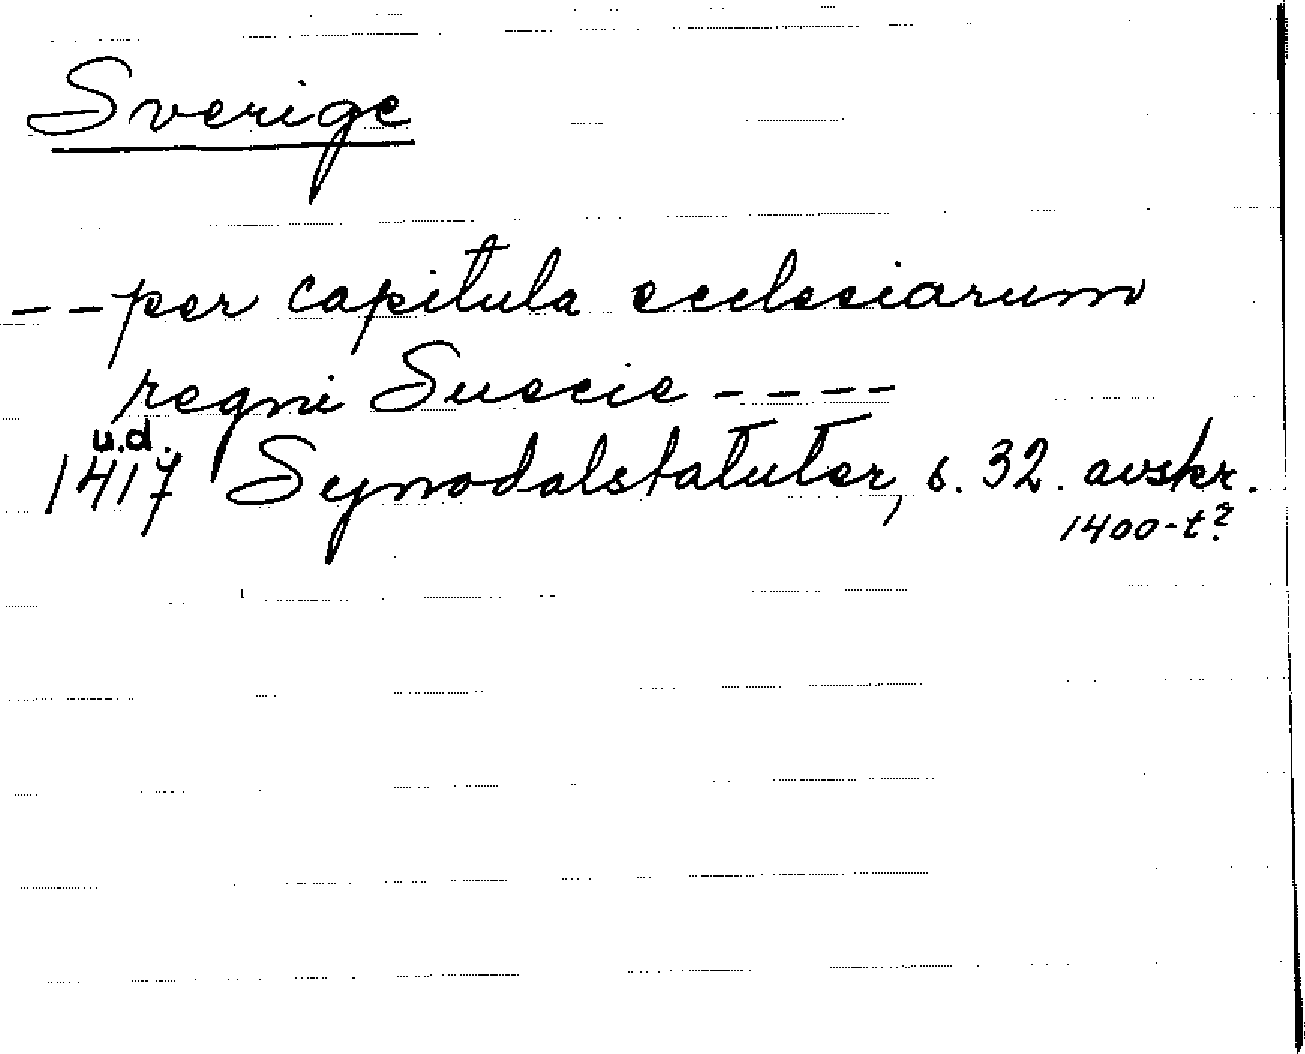 Sverige
-- per capitula ecclesiarum
regni Suecie ----
u.d.
1417 Synodalstatuter, s. 32. avskr.
1400-t?